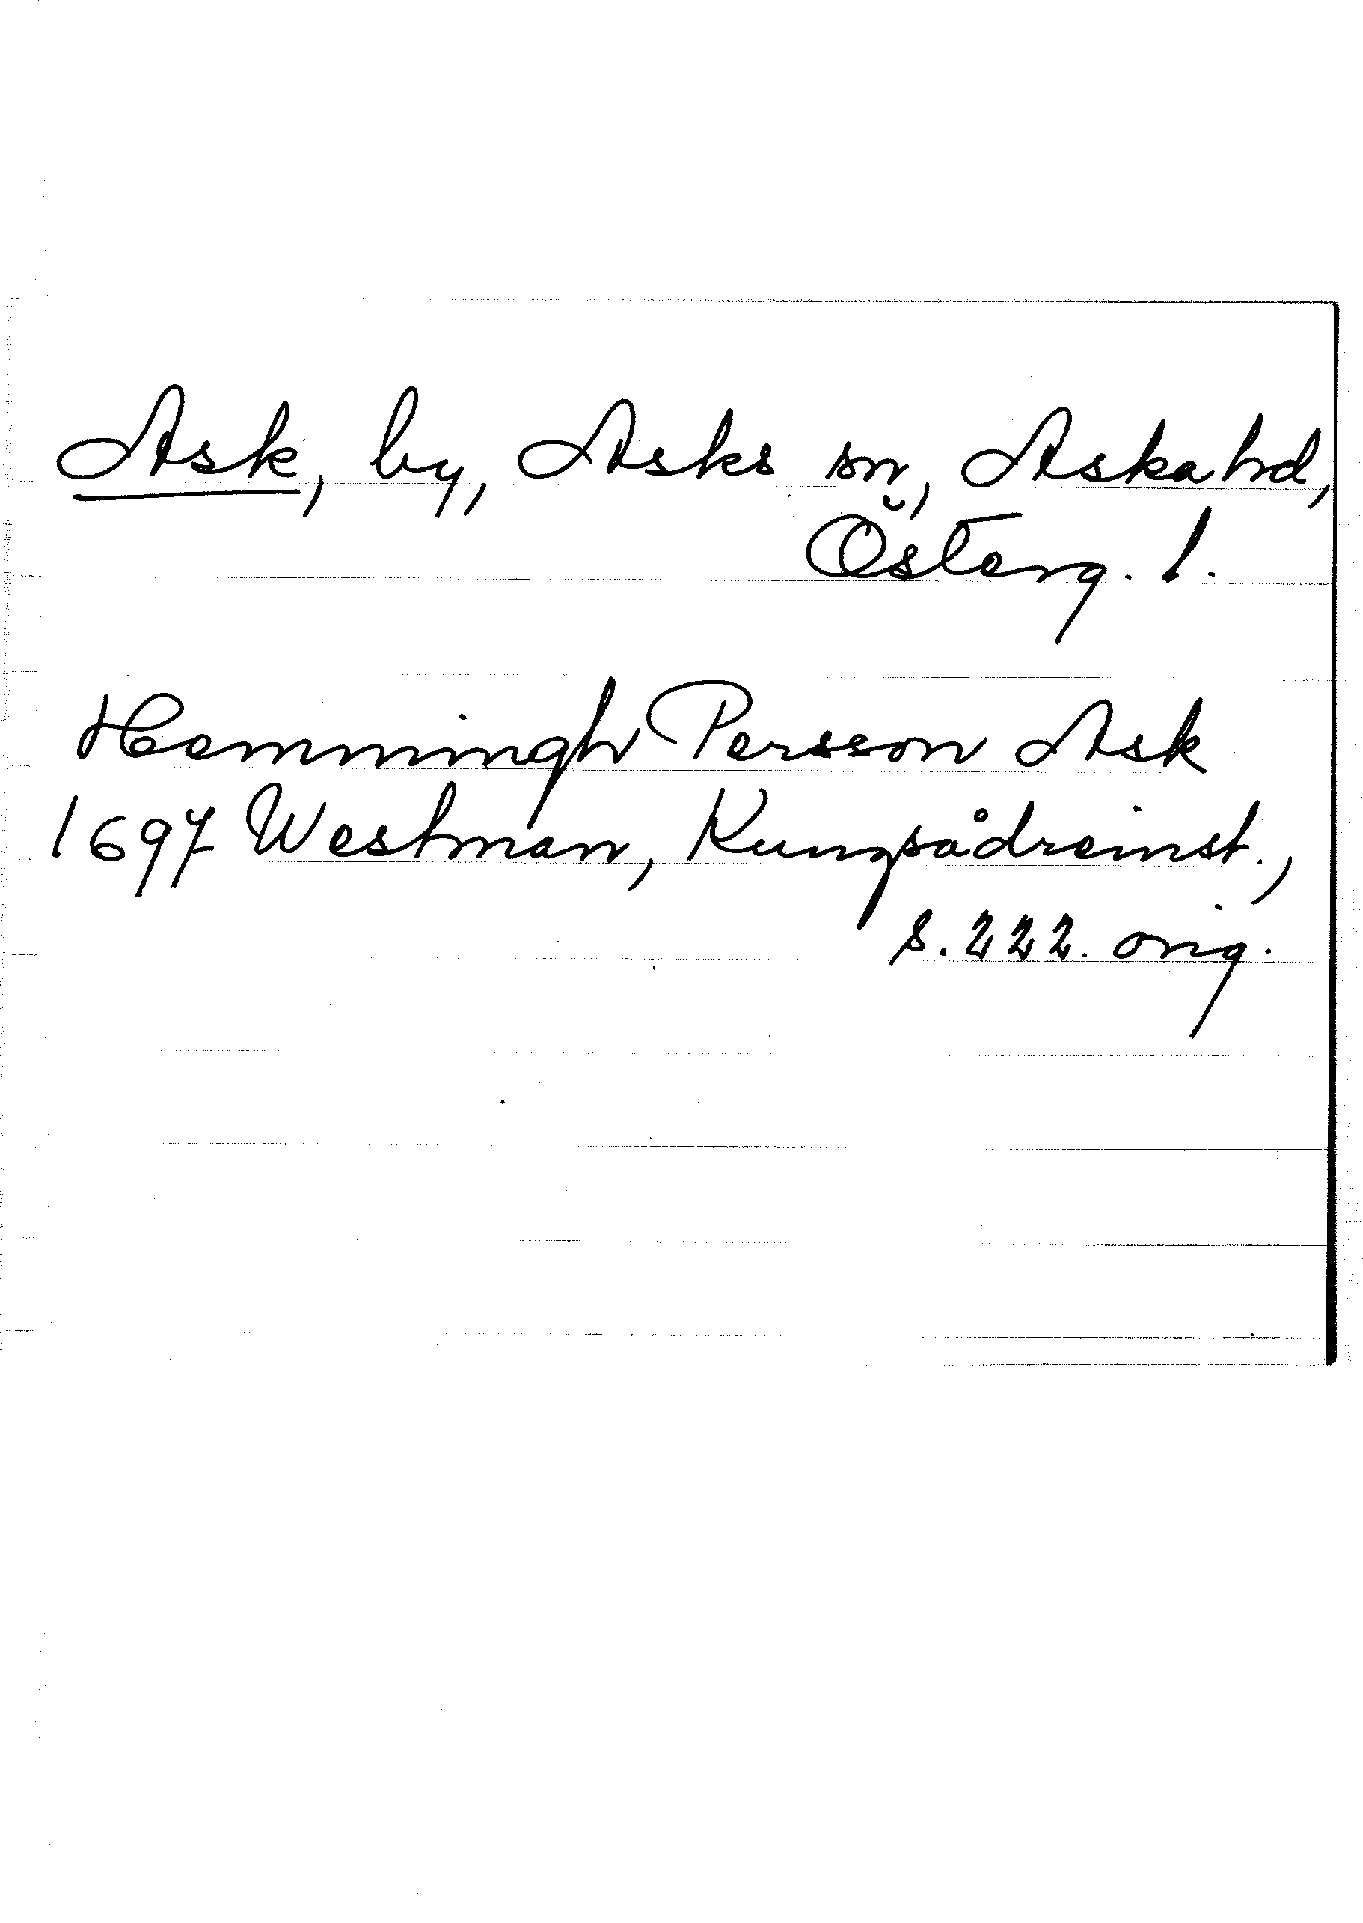 Ask, by, Asks sn, Aska hd,
Österg. l.
Hemmingh Persson Ask
1697 Westman, Kungsådreinst.,
s. 222. orig.